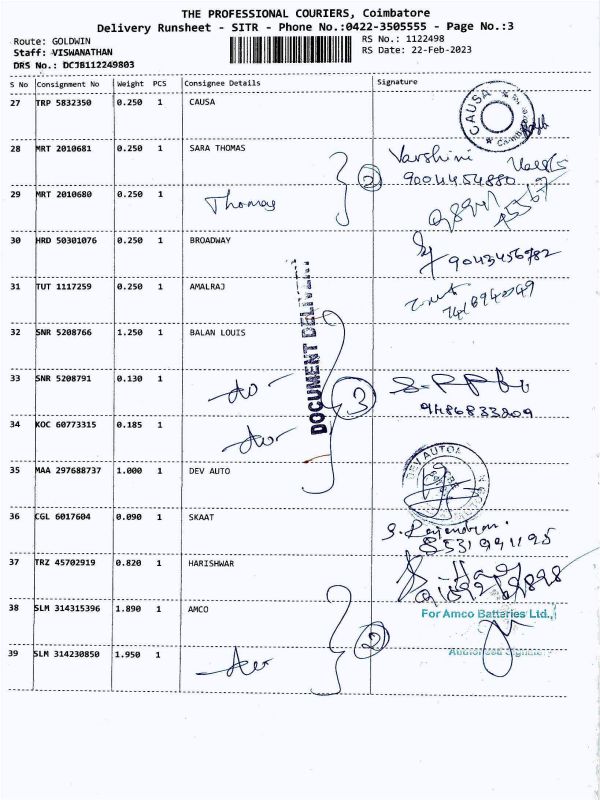 THE PROFESSIONAL COURIERS, Coimbatore
Delivery Runsheet - SITR - Phone No.:0422-3505555 - Page No.:3
Route: GOLDWIN
RS No.: 1122498
Staff: VISWANATHAN
RS Date: 22-Feb-2023
DRS No.: DCJB112249803
S No Consignment No Weight PCS Consignee Details Signature
27 TRP 5832350 0.250 1 CAUSA
CAUSA
28 MRT 2010681 0.250 1 SARA THOMAS
Varshini
9004454880
2
29 MRT 2010680 0.250 1 Thomas
30 HRD 50301076 0.250 1 BROADWAY
9043456782
31 TUT 1117259 0.250 1 AMALRAJ
32 SNR 5208766 1.250 1 BALAN LOUIS
DOCUMENT
33 SNR 5208791 0.130 1
3
9486833209
34 KOC 60773315 0.185 1
35 MAA 297688737 1.000 1 DEV AUTO
DEV AUTO
36 CGL 6017604 0.090 1 SKAAT
37 TRZ 45702919 0.820 1 HARISHWAR
38 SLM 314315396 1.890 1 AMCO
For Amco Batteries Ltd.,
2
39 SLM 314230850 1.950 1
Authorised Signatory